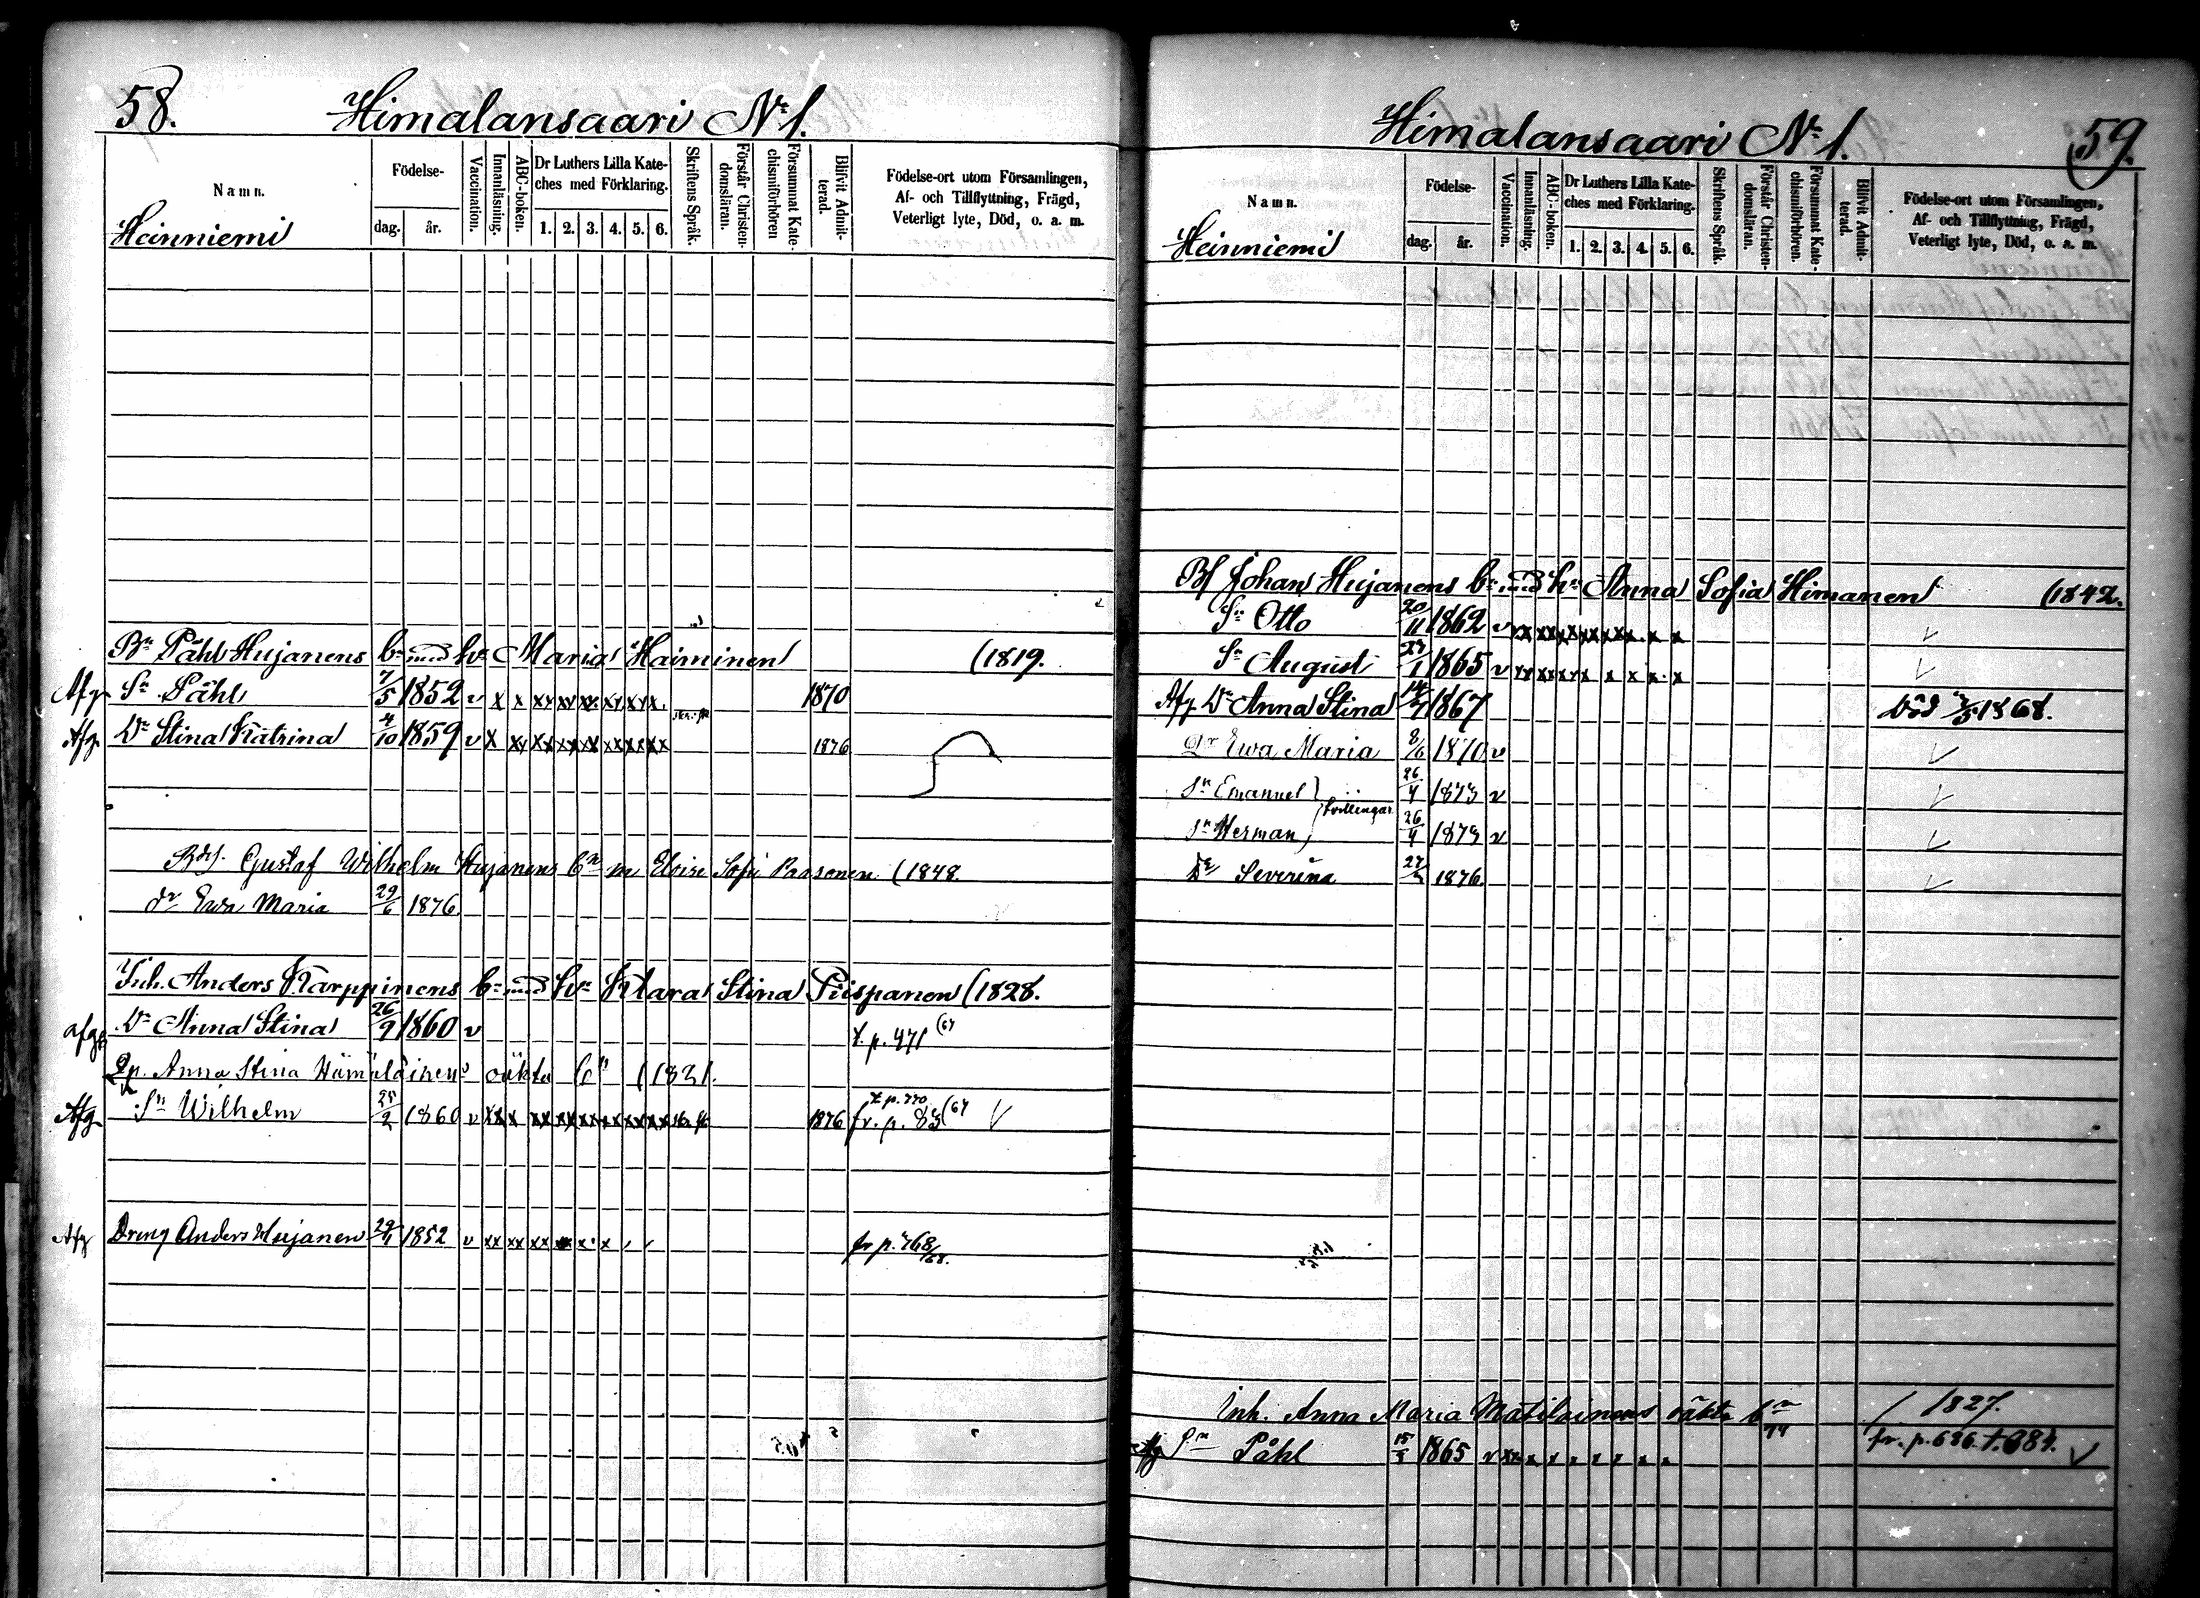 58.
Himalansaari No 1.
Namn.
Födelse-
dag.
år.
Vaccination.
Innanläsning.
ABC-boken.
Dr Luthers Lilla Kate-
ches med Förklaring.
1. 2. 3. 4. 5. 6.
Skriftens Språk.
Förstår Christen-
domsläran.
Försummat Kate-
chismiförhören
Blifvit Admit-
terad.
Födelse-ort utom Församlingen,
Af- och Tillflyttning, Frägd,
Veterligt lyte, Död, o. a. m.
Heinniemi
Bn Påhl Hujanens bn med hu Maria Haiminen (1819.
Afg. Sn Påhl 7/5 1852 v x x xx xx xx xx xx x. 1870
Afg. Dr Stina Katrina 4/10 1859 v x xx xx xx xx xx xx xx 1876
Gustaf Wilhelm Hujanens bn m Sofi Paasonen (1848.
dr Ewa Maria 29/6 1876
Inh. Anders Karppinens bn med hu Klara Stina Piispanen (1828.
afg. Dr Anna Stina 26/9 1860 v t. p. 471 (67
Anna Stina Hämäläinens oäkta bn (1821.
t. p. 770
Afg Sn Wilhelm 25/2 1860 v xx x xx xx xx xx xx xx 1876 fr. p. 83 (67 V
Afg Dreng Anders Hujanen 29/4 1852 v xx xx xx x x x fr p. 768/68.
Himalansaari No 1.
59.
Namn.
Födelse-
dag.
år.
Vaccination.
Innanläsning.
ABC-boken.
Dr Luthers Lilla Kate-
ches med Förklaring.
1. 2. 3. 4. 5. 6.
Skriftens Språk.
Förstår Christen-
domsläran.
Försummat Kate-
chismiförhören.
Blifvit Admit-
terad.
Födelse-ort utom Församlingen,
Af- och Tillflyttning, Frägd,
Veterligt lyte, Död, o. a. m.
Heinniemi
Bf Johan Hujanens bn med hu Anna Sofia Himanen (1842.
Sn Otto 20/11 1862 v xx xx xx xx xx x x x
Sn August 1865 v xx xx xx xx x x x x
Afg Dr Anna Stina 1867 Död 1868.
Dr Ewa Maria 1870 v
Sn Emanuel } tvillingar 26/4 1873 v
Sn Herman 26/4 1873 v
Dr Severina 1876.
Inh. Anna Maria Matilainens oäkta bn / 1827.
Afg Sn Påhl 1865 v xx x x x x x x x fr. p. 686. t. 684. V